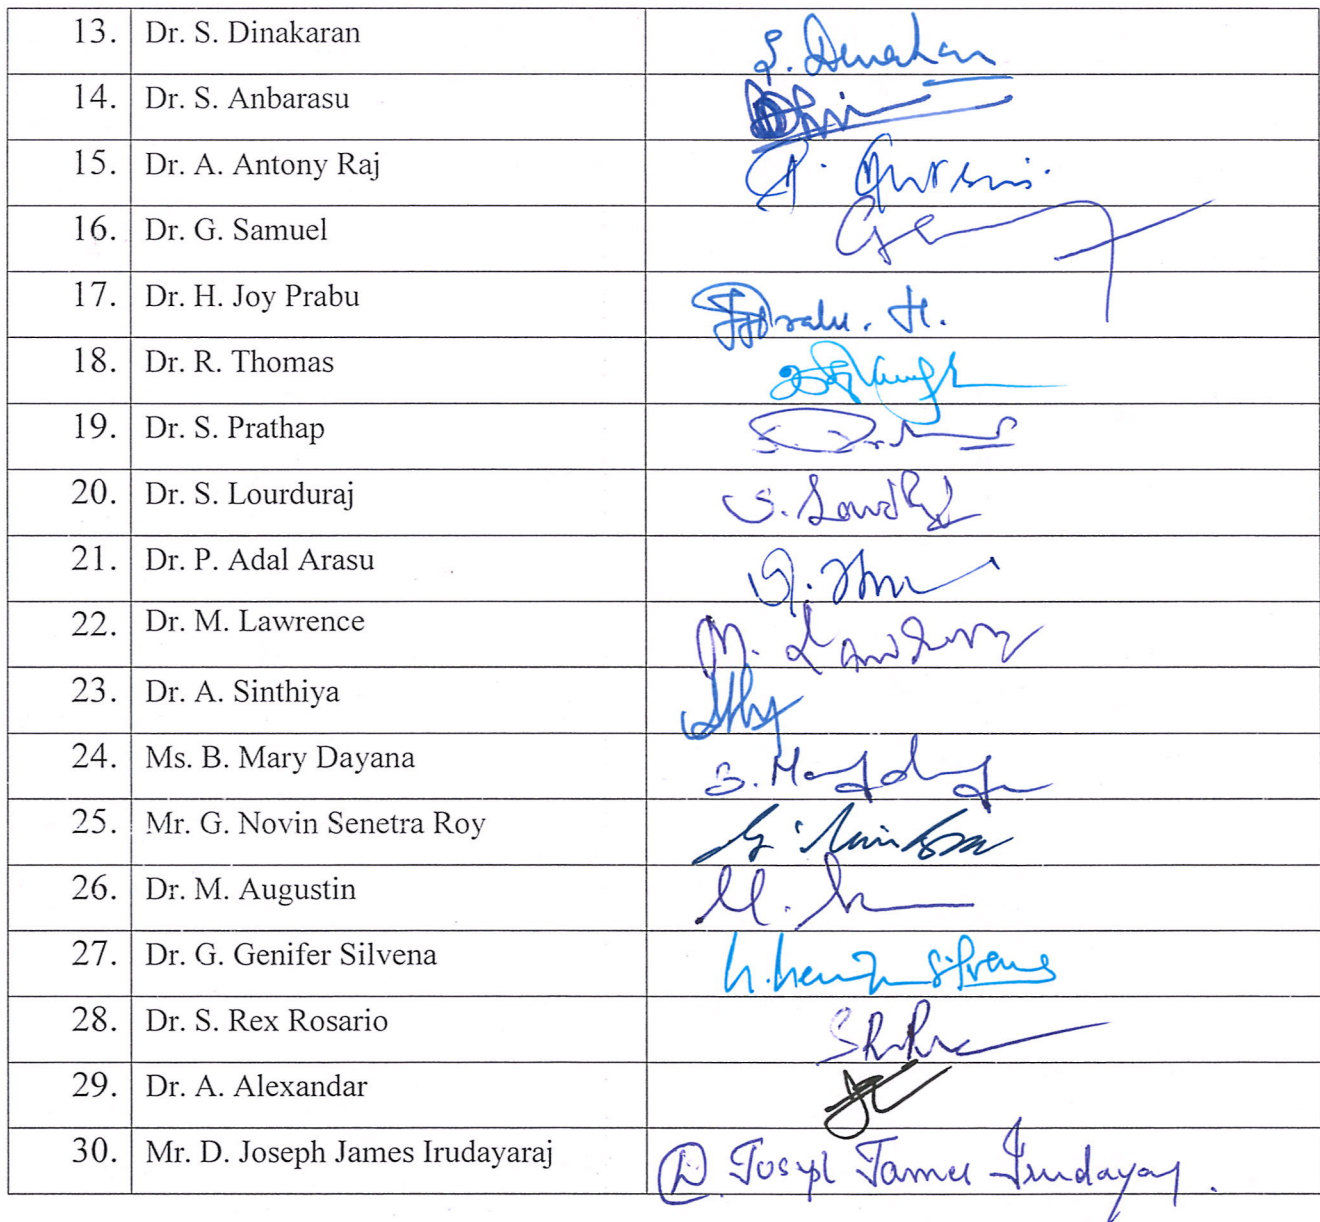 13. Dr. S. Dinakaran S. Dinakaran
14. Dr. S. Anbarasu
15. Dr. A. Antony Raj A.
16. Dr. G. Samuel
17. Dr. H. Joy Prabu Prabu. H.
18. Dr. R. Thomas
19. Dr. S. Prathap
20. Dr. S. Lourduraj S.
21. Dr. P. Adal Arasu
22. Dr. M. Lawrence M.
23. Dr. A. Sinthiya
24. Ms. B. Mary Dayana B. Mary
25. Mr. G. Novin Senetra Roy
26. Dr. M. Augustin M.
27. Dr. G. Genifer Silvena Silvena
28. Dr. S. Rex Rosario
29. Dr. A. Alexandar
30. Mr. D. Joseph James Irudayaraj D. Joseph James Irudayaraj.